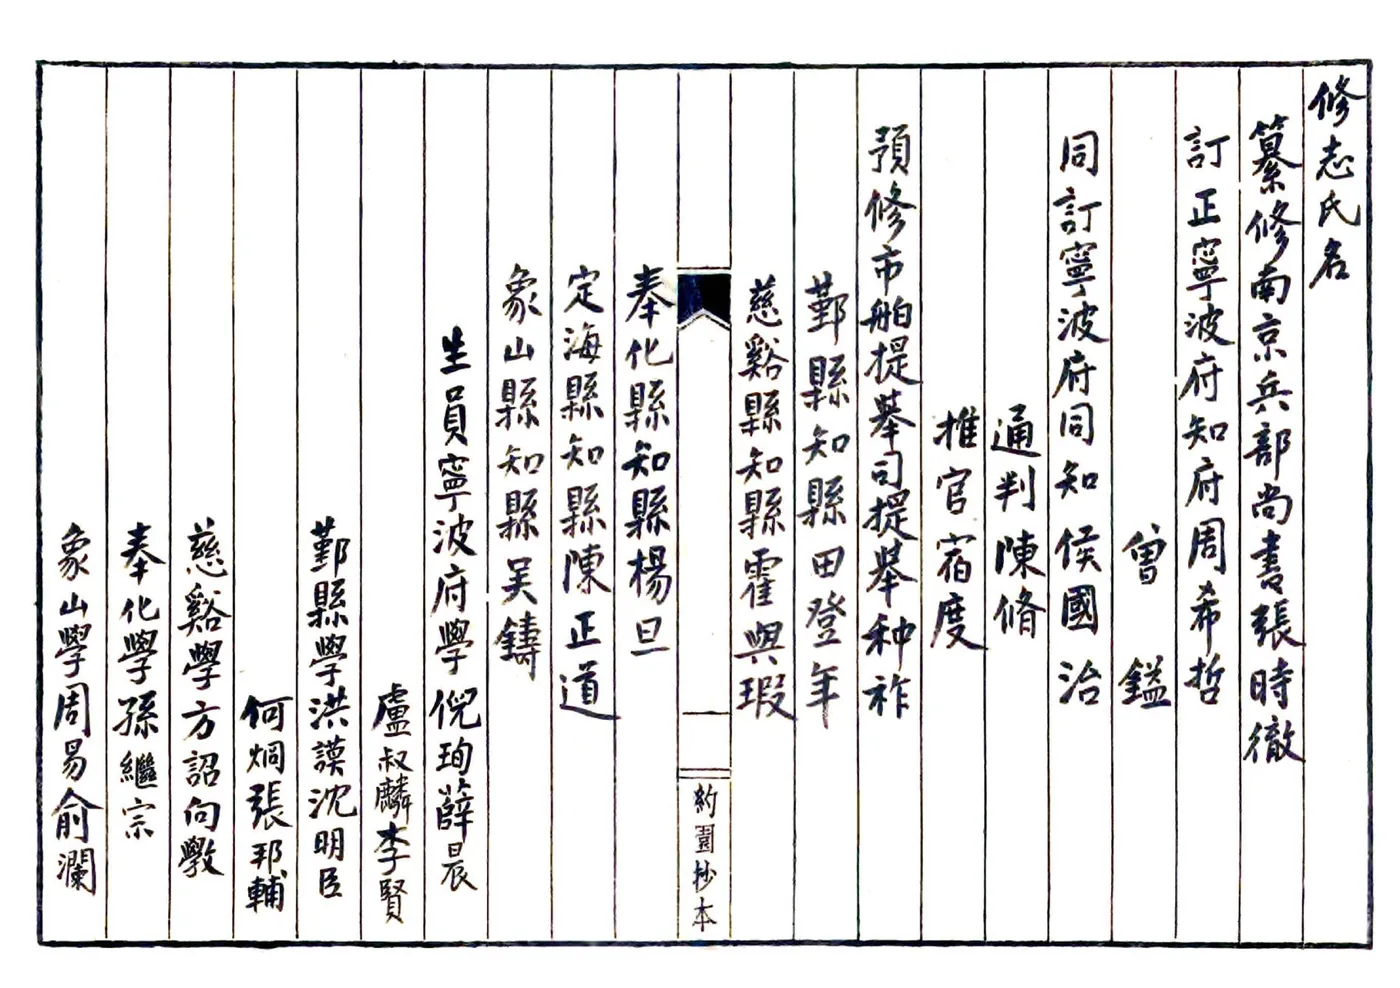 修志氏名
纂修南京兵部尚書張時徹
訂正寧波府知府周希哲
曾鎰
同訂寧波府同知侯國治
通判陳脩
推官宿度
預修市舶提舉司提舉种祚
鄞縣知縣田登年
慈谿縣知縣霍與瑕
約園抄本
奉化縣知縣楊旦
定海縣知縣陳正道
象山縣知縣吴鑄
生員寧波府學倪珣薛晨
盧叔麟李賢
鄞縣學洪謨沈明臣
何炯張邦輔
慈谿學方詔向斆
奉化學孫繼宗
象山學周易俞瀾